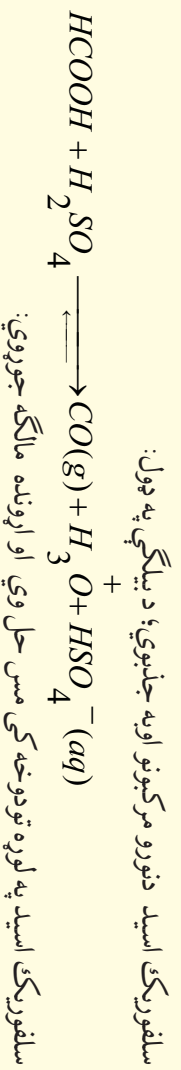 سلفوریک اسید دنورو مرکبونو اوبه جذبوي؛ د بیلګې په ډول:
HCOOH + H₂SO₄ ⟶⟵ CO(g) + H₃O⁺ + HSO₄⁻(aq)
سلفوریک اسید په لوړه تودوخه کې مس حل وي او اړونده مالګه جوړوي: